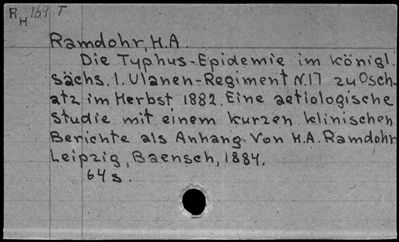 RH 169 T
Ramdohr, H.A.
Die Typhus-Epidemie im königl.
Sächs. 1. Ulanen-Regiment N.17 zu Osch-
atz im Herbst 1882. Eine aetiologische
Studie mit einem kurzen klinischen
Berichte als Anhang. Von H.A. Ramdohr
Leipzig, Baensch, 1884.
64 s.